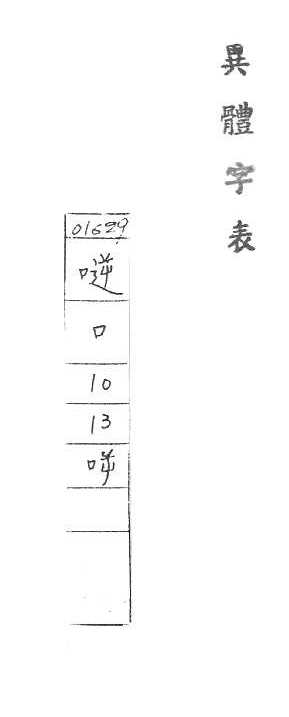 異體字表
01629
口
10
13